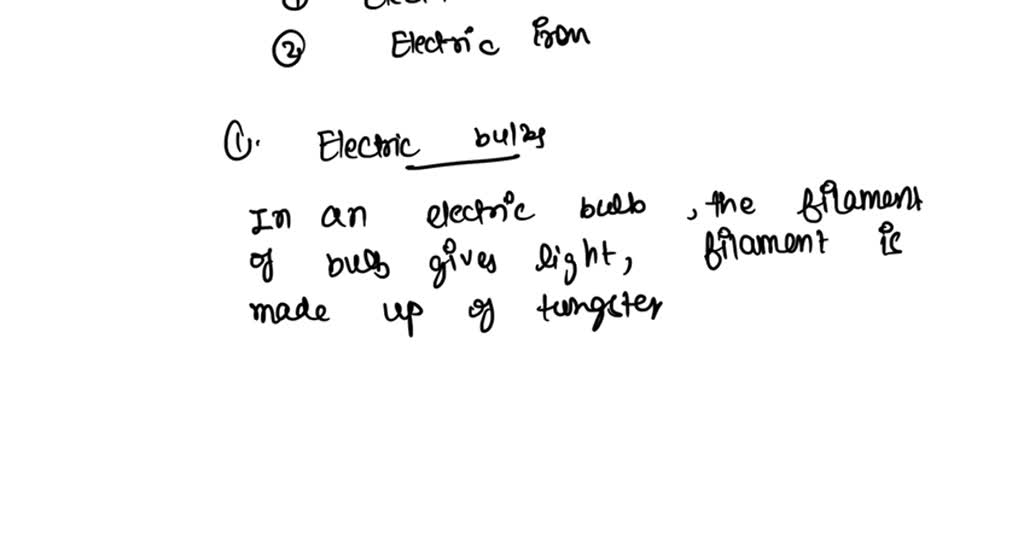 ①
② Electric iron
①. Electric bulbs
In an electric bulb, the filament
of bulb gives light, filament is
made up of tungsten